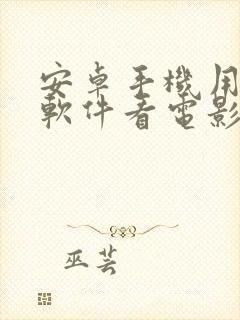 安卓手機用
軟件看電影
巫芸